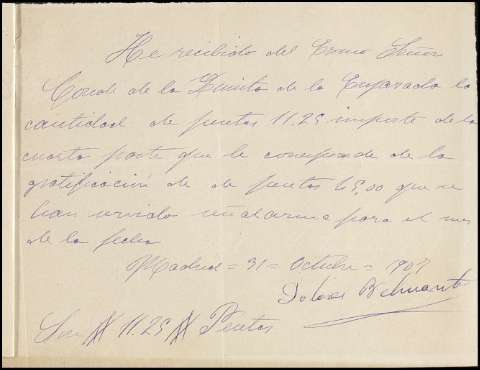 He recibido del Exmo Señor
Conde de la Quinta de la Enjarada la
cantidad de pesetas 11.25 importe de la
cuarta parte que le corresponde de la
gratificación de de pesetas 45,00 que se
han servido señalarme para el mes
de la fecha
Madrid = 31 = Octubre = 1909
Dolores Belmonte
Son # 11.25 # Pesetas